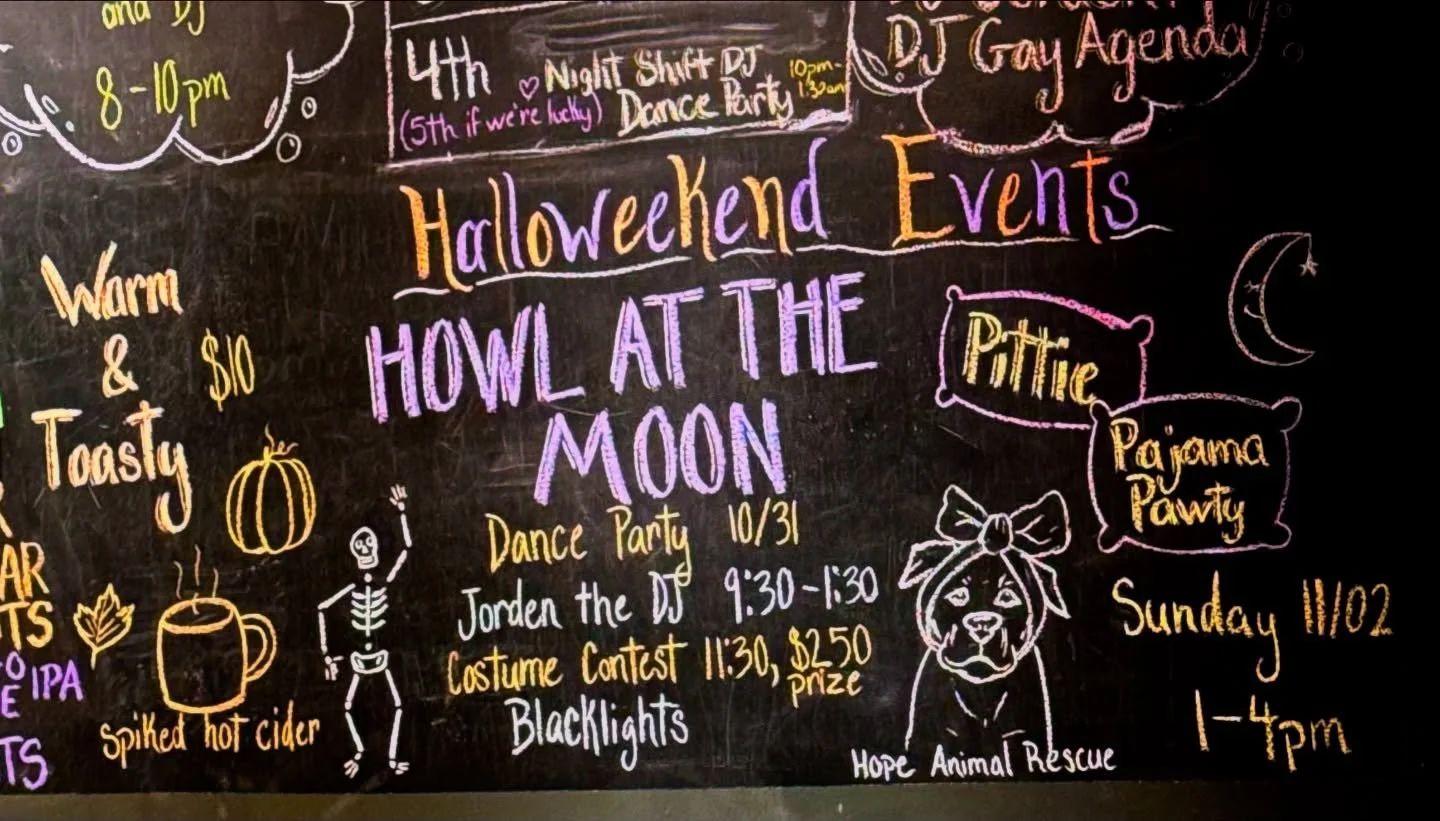 and DJ
8-10pm
4th
(5th if we're lucky)
Night Shift DJ
Dance Party
10pm-
1:30am
DJ Gay Agenda
Halloweekend Events
Warm
&
Toasty
$10
Spiked hot cider
HOWL AT THE
MOON
Dance Party 10/31
Jorden the DJ 9:30-1:30
Costume Contest 11:30, $250
prize
Blacklights
Pittie
Pajama
Pawty
Sunday 11/02
1-4pm
Hope Animal Rescue
AR
TS
IPA
E
TS